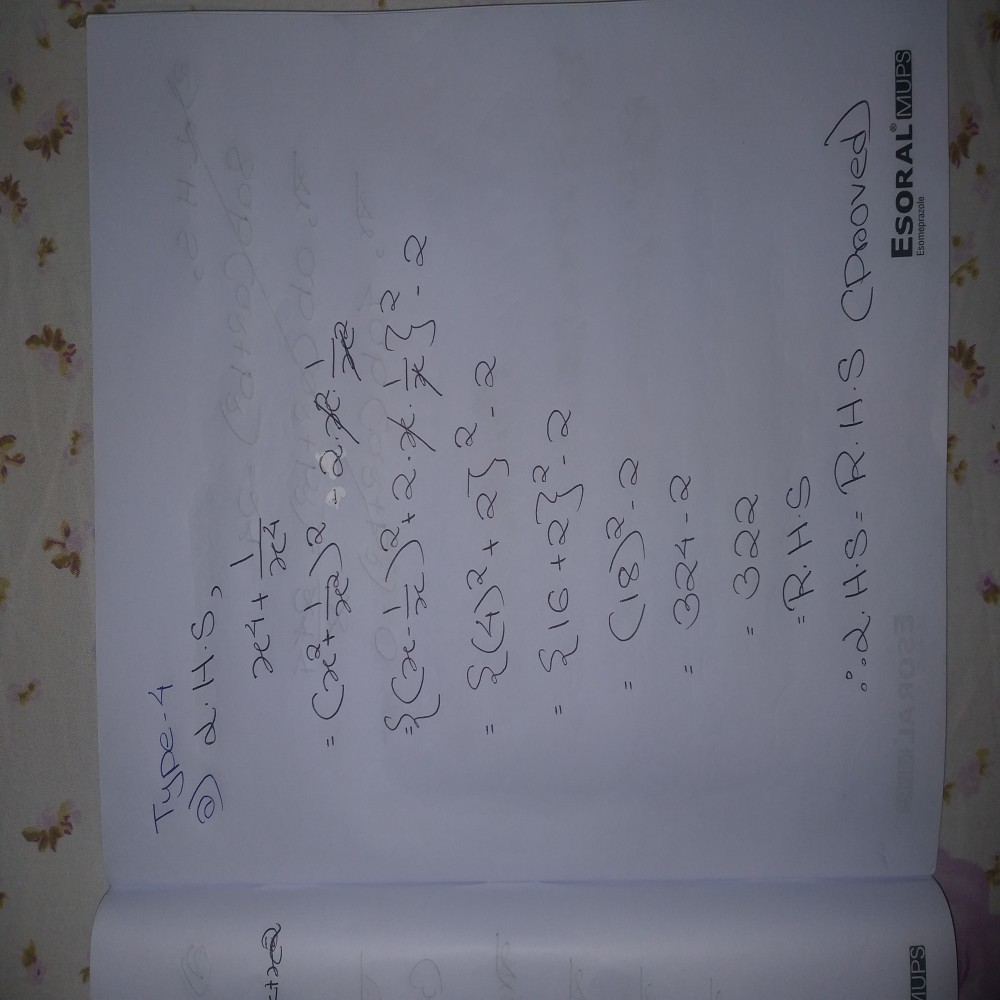 Type-4
a) L.H.S,
x⁴ + 1/x⁴
= (x² + 1/x²)² - 2.x².1/x²
= {(x - 1/x)² + 2.x.1/x}² - 2
= {(4)² + 2}² - 2
= {16 + 2}² - 2
= (18)² - 2
= 324 - 2
= 322
= R.H.S
∴ L.H.S = R.H.S (Proved)
ESORAL® MUPS
Esomeprazole
MUPS